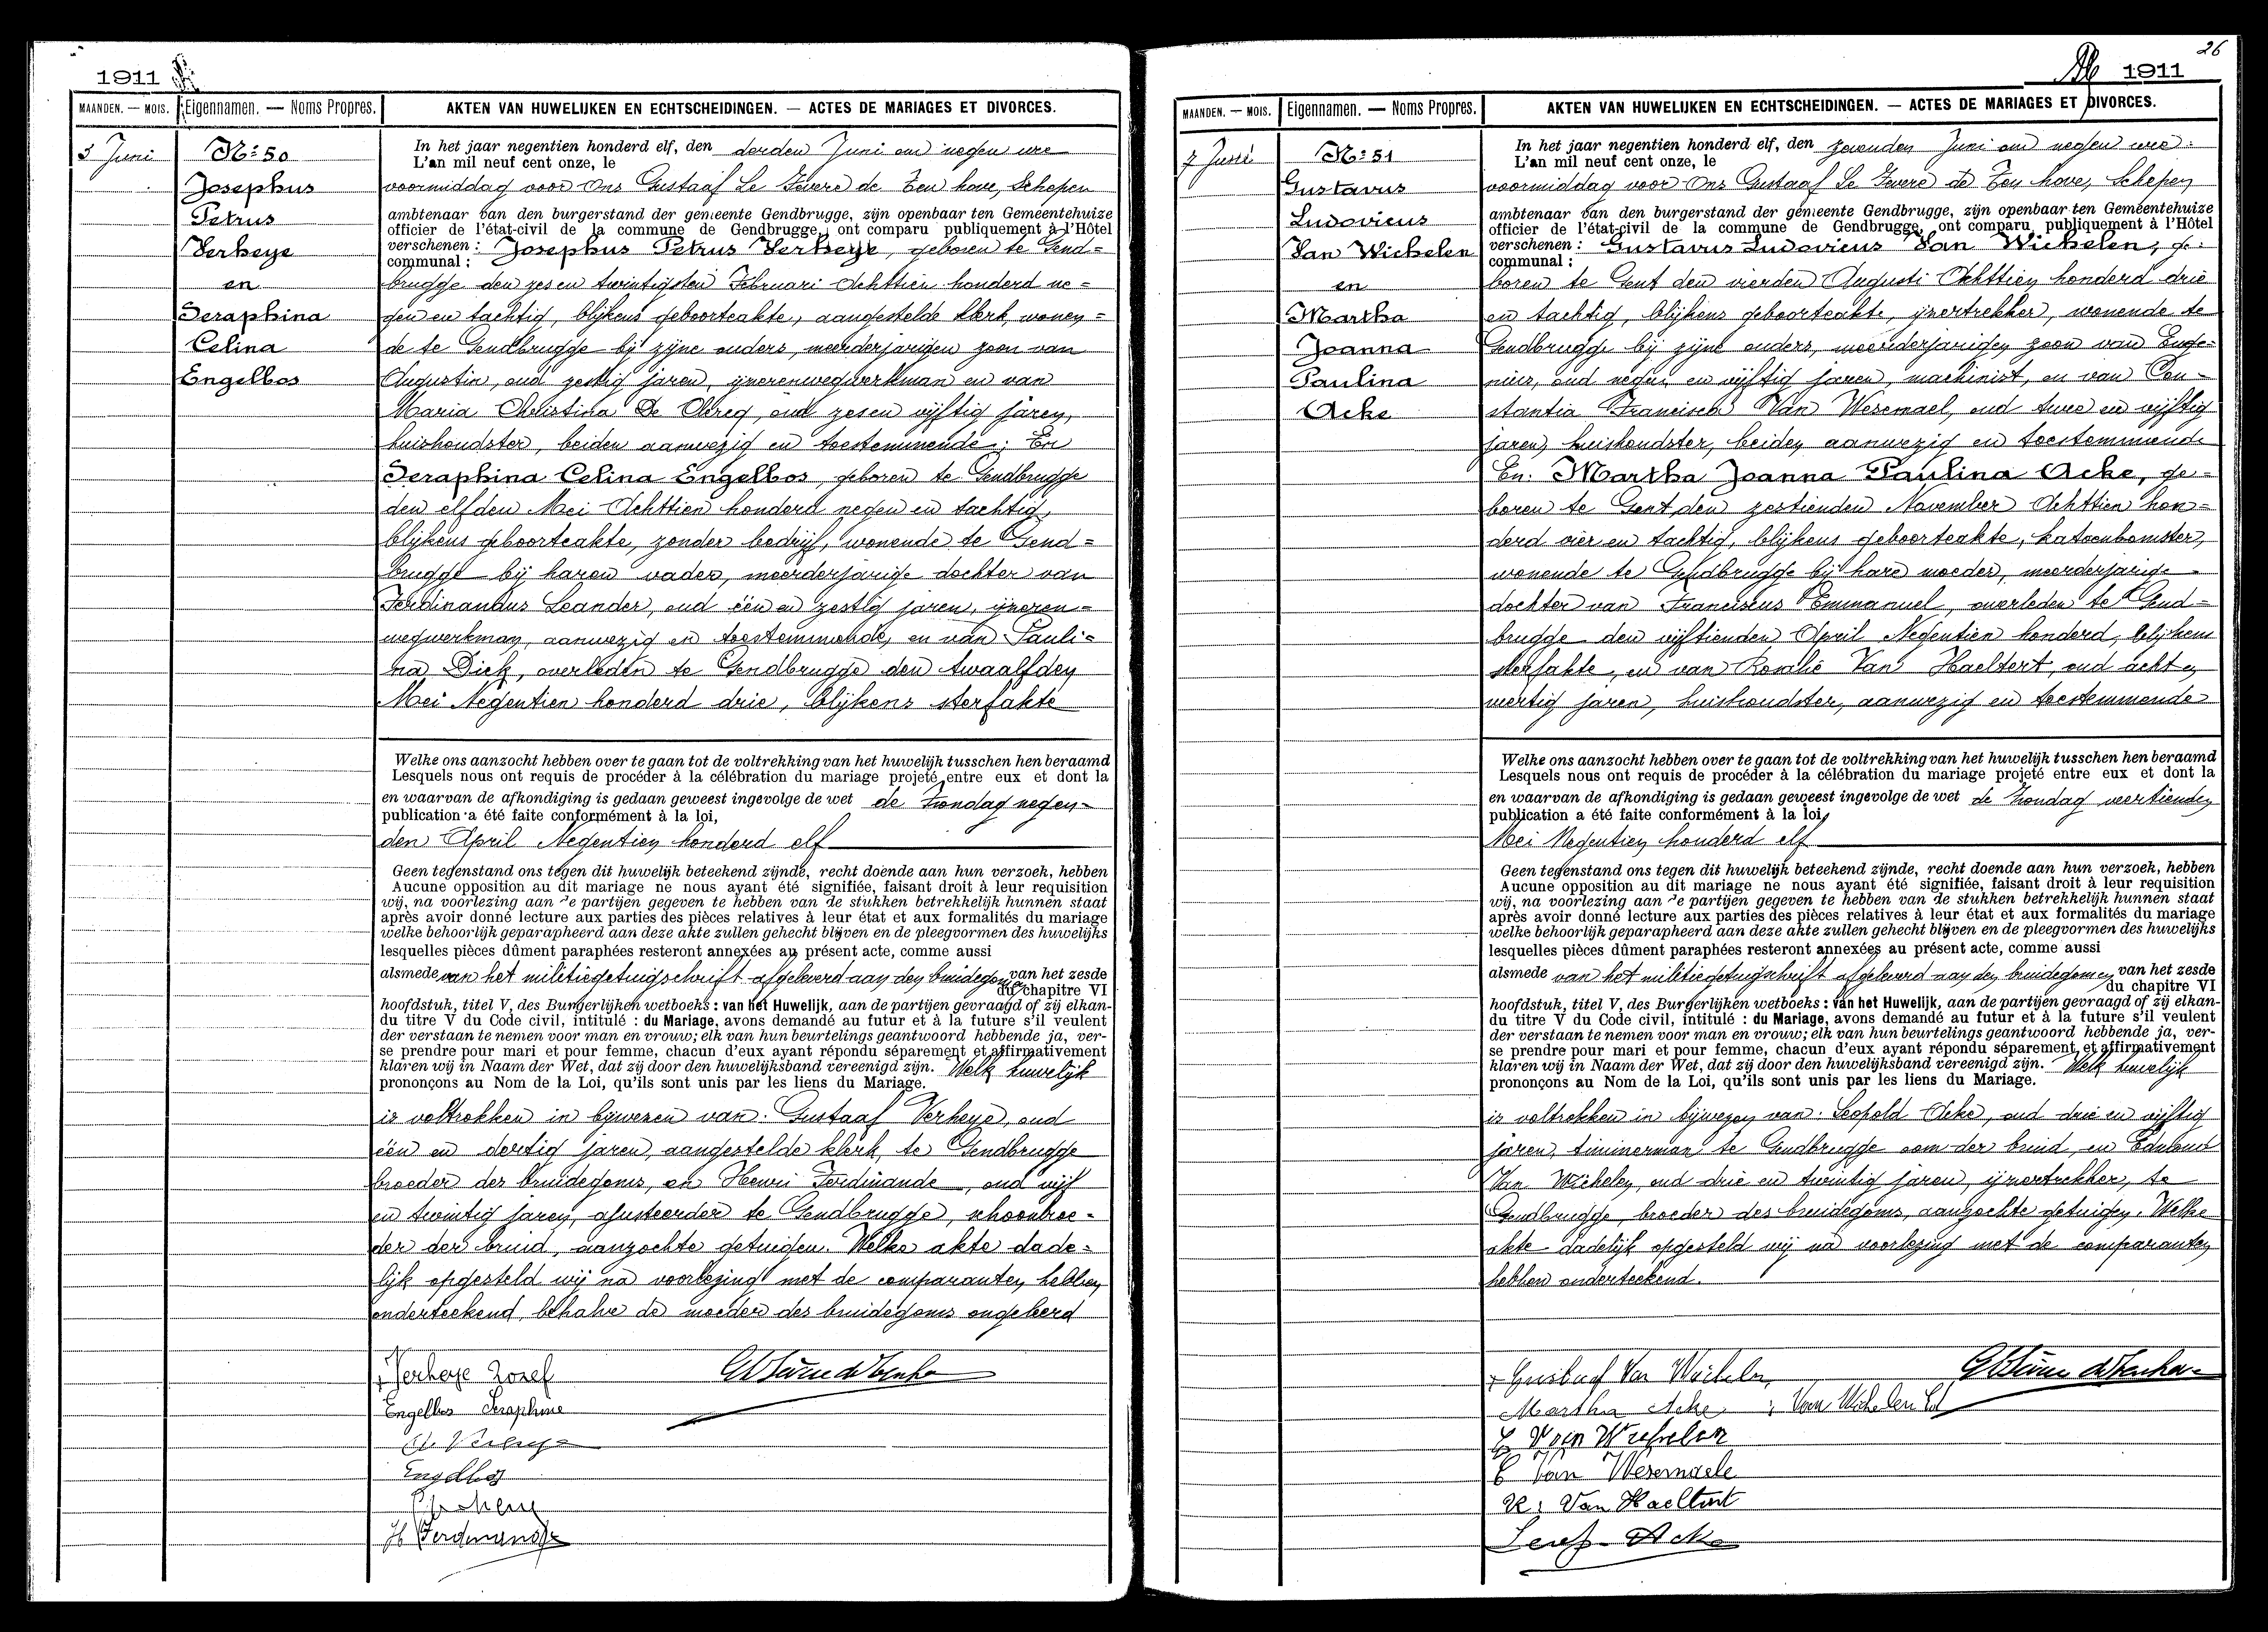 1911
MAANDEN. — MOIS.
Eigennamen. — Noms Propres.
AKTEN VAN HUWELIJKEN EN ECHTSCHEIDINGEN. — ACTES DE MARIAGES ET DIVORCES.
3 Juni
Nº 50
Josephus
Petrus
Verheye
en
Seraphina
Celina
Engelbos
In het jaar negentien honderd elf, den derden Juni om negen ure
L'an mil neuf cent onze, le
voormiddag voor Ons Gustaaf Le Fevere de Ten hove, Schepen
ambtenaar van den burgerstand der gemeente Gendbrugge, zijn openbaar ten Gemeentehuize
officier de l'état-civil de la commune de Gendbrugge, ont comparu publiquement à l'Hôtel
verschenen : Josephus Petrus Verheye, geboren te Gend=
communal :
brugge den zes en twintigsten Februari Achttien honderd ne=
gen en tachtig, blijkens geboorteakte, aangestelde klerk, wonen=
de te Gendbrugge bij zijne ouders, meerderjarigen zoon van
Augustin, oud zestig jaren, ijzerenwegwerkman en van
Maria Christina De Clercq, oud zes en vijftig jaren,
huishoudster, beiden aanwezig en toestemmende; En
Seraphina Celina Engelbos, geboren te Gendbrugge
den elfden Mei Achttien honderd negen en tachtig,
blijkens geboorteakte, zonder bedrijf, wonende te Gend=
brugge bij haren vader, meerderjarige dochter van
Ferdinandus Leander, oud één en zestig jaren, ijzeren=
wegwerkman, aanwezig en toestemmende, en van Pauli=
na Dick, overleden te Gendbrugge den twaalfden
Mei Negentien honderd drie, blijkens sterfakte
Welke ons aanzocht hebben over te gaan tot de voltrekking van het huwelijk tusschen hen beraamd
Lesquels nous ont requis de procéder à la célébration du mariage projeté entre eux et dont la
en waarvan de afkondiging is gedaan geweest ingevolge de wet de Zondag negen=
publication a été faite conformément à la loi,
den April Negentien honderd elf
Geen tegenstand ons tegen dit huwelijk beteekend zijnde, recht doende aan hun verzoek, hebben
Aucune opposition au dit mariage ne nous ayant été signifiée, faisant droit à leur requisition
wij, na voorlezing aan de partijen gegeven te hebben van de stukken betrekkelijk hunnen staat
après avoir donné lecture aux parties des pièces relatives à leur état et aux formalités du mariage
welke behoorlijk geparapheerd aan deze akte zullen gehecht blijven en de pleegvormen des huwelijks
lesquelles pièces dûment paraphées resteront annexées au présent acte, comme aussi
alsmede van het militiegetuigschrift afgeleverd aan den bruidegom van het zesde
du chapitre VI
hoofdstuk, titel V, des Burgerlijken wetboeks : van het Huwelijk, aan de partijen gevraagd of zij elkan-
du titre V du Code civil, intitulé : du Mariage, avons demandé au futur et à la future s'il veulent
der verstaan te nemen voor man en vrouw; elk van hun beurtelings geantwoord hebbende ja, ver-
se prendre pour mari et pour femme, chacun d'eux ayant répondu séparement et affirmativement
klaren wij in Naam der Wet, dat zij door den huwelijksband vereenigd zijn. Welk huwelijk
prononçons au Nom de la Loi, qu'ils sont unis par les liens du Mariage.
is voltrokken in bijwezen van: Gustaaf Verheye, oud
één en dertig jaren, aangestelde klerk, te Gendbrugge
broeder des bruidegoms, en Henri Ferdinande, oud vijf
en twintig jaren, ajusteerder te Gendbrugge, schoonbroe=
der der bruid, aanzochte getuigen. Welke akte dade=
lijk opgesteld wij na voorlezing met de comparanten hebben
onderteekend, behalve de moeder des bruidegoms ongeleerd
Verheye Jozef
Engelbos Seraphine
Engelbos
H Ferdinande
26
1911
MAANDEN. — MOIS.
Eigennamen. — Noms Propres.
AKTEN VAN HUWELIJKEN EN ECHTSCHEIDINGEN. — ACTES DE MARIAGES ET DIVORCES.
7 Juni
Nº 51
Gustavus
Ludovicus
Van Wichelen
en
Martha
Joanna
Paulina
Acke
In het jaar negentien honderd elf, den zevenden Juni om negen ure
L'an mil neuf cent onze, le
voormiddag voor Ons Gustaaf Le Fevere de Ten hove, Schepen
ambtenaar van den burgerstand der gemeente Gendbrugge, zijn openbaar ten Gemeentehuize
officier de l'état-civil de la commune de Gendbrugge, ont comparu publiquement à l'Hôtel
verschenen : Gustavus Ludovicus Van Wichelen, ge-
communal :
boren te Gent den vierden Augusti Achttien honderd drie
en tachtig, blijkens geboorteakte, ijzertrekker, wonende te
Gendbrugge bij zijne ouders, meerderjarigen zoon van Euge-
nius, oud negen en vijftig jaren, machinist, en van Con-
stantia Francisca Van Wesemael, oud twee en vijftig
jaren, huishoudster, beiden aanwezig en toestemmende
En. Martha Joanna Paulina Acke, ge-
boren te Gent den zestienden November Achttien hon=
derd vier en tachtig, blijkens geboorteakte, katoenbomster,
wonende te Gendbrugge bij hare moeder, meerderjarige
dochter van Franciscus Emmanuel, overleden te Gend=
brugge den vijftienden April Negentien honderd, blijkens
sterfakte, en van Rosalie Van Haeltert, oud acht en
veertig jaren, huishoudster, aanwezig en toestemmende
Welke ons aanzocht hebben over te gaan tot de voltrekking van het huwelijk tusschen hen beraamd
Lesquels nous ont requis de procéder à la célébration du mariage projeté entre eux et dont la
en waarvan de afkondiging is gedaan geweest ingevolge de wet de Zondag veertienden
publication a été faite conformément à la loi,
Mei Negentien honderd elf
Geen tegenstand ons tegen dit huwelijk beteekend zijnde, recht doende aan hun verzoek, hebben
Aucune opposition au dit mariage ne nous ayant été signifiée, faisant droit à leur requisition
wij, na voorlezing aan de partijen gegeven te hebben van de stukken betrekkelijk hunnen staat
après avoir donné lecture aux parties des pièces relatives à leur état et aux formalités du mariage
welke behoorlijk geparapheerd aan deze akte zullen gehecht blijven en de pleegvormen des huwelijks
lesquelles pièces dûment paraphées resteront annexées au présent acte, comme aussi
alsmede van het militiegetuigschrift afgeleverd aan den bruidegom en van het zesde
du chapitre VI
hoofdstuk, titel V, des Burgerlijken wetboeks : van het Huwelijk, aan de partijen gevraagd of zij elkan-
du titre V du Code civil, intitulé : du Mariage, avons demandé au futur et à la future s'il veulent
der verstaan te nemen voor man en vrouw; elk van hun beurtelings geantwoord hebbende ja, ver-
se prendre pour mari et pour femme, chacun d'eux ayant répondu séparement et affirmativement
klaren wij in Naam der Wet, dat zij door den huwelijksband vereenigd zijn. Welk huwelijk
prononçons au Nom de la Loi, qu'ils sont unis par les liens du Mariage.
is voltrokken in bijwezen van: Leopold Acke, oud drie en vijftig
jaren, timmerman te Gendbrugge oom der bruid, en Edmond
Van Wichelen, oud drie en twintig jaren, ijzertrekker, te
Gendbrugge, broeder des bruidegoms, aanzochte getuigen. Welke
akte dadelijk opgesteld wij na voorlezing met de comparanten
hebben onderteekend.
Gustaaf Van Wichelen
Martha Acke Van Wichelen Ed
E Van Wichelen
C Van Wesemaele
R. Van Haeltert
Leop. Acke